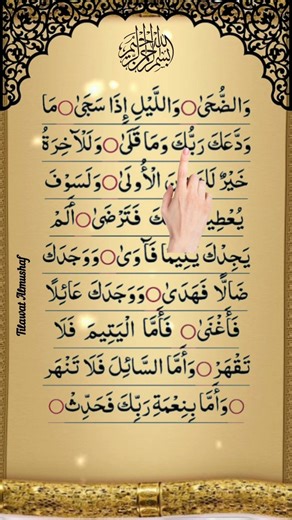 بسم الله الرحمن الرحيم
وَالضُّحَىٰ ○ وَاللَّيْلِ إِذَا سَجَىٰ ○ مَا
وَدَّعَكَ رَبُّكَ وَمَا قَلَىٰ ○ وَلَلْآخِرَةُ
خَيْرٌ الْأُولَىٰ ○ وَلَسَوْفَ
فَتَرْضَىٰ ○ أَلَمْ
يَجِدْكَ يَتِيمًا فَآوَىٰ ○ وَوَجَدَكَ
ضَالًّا فَهَدَىٰ ○ وَوَجَدَكَ عَائِلًا
فَأَغْنَىٰ ○ فَأَمَّا الْيَتِيمَ فَلَا
تَقْهَرْ ○ وَأَمَّا السَّائِلَ فَلَا تَنْهَر
○ وَأَمَّا بِنِعْمَةِ رَبِّكَ فَحَدِّثْ ○
Tilawat Almushaf